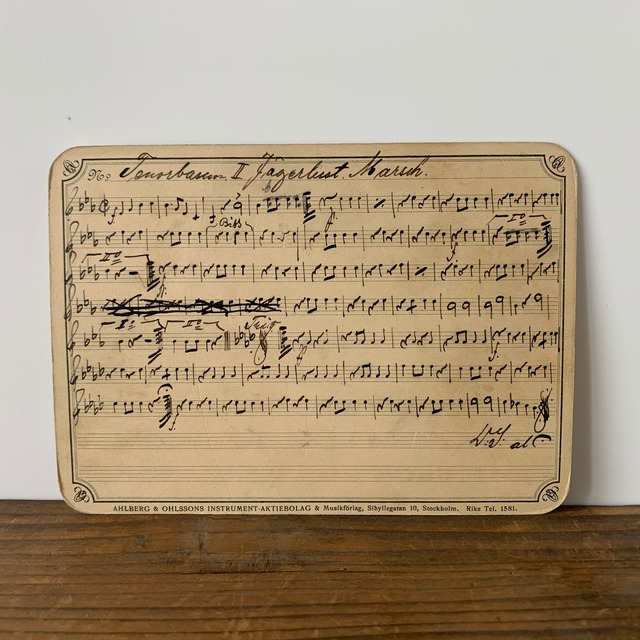 No. Tenorbasun II Jägerlust. Marsch.
Biss
I o
II o
I o II o Trio
D.S. al
AHLBERG & OHLSSONS INSTRUMENT-AKTIEBOLAG & Musikförlag, Sibyllegatan 10, Stockholm. Riks Tel. 1581.